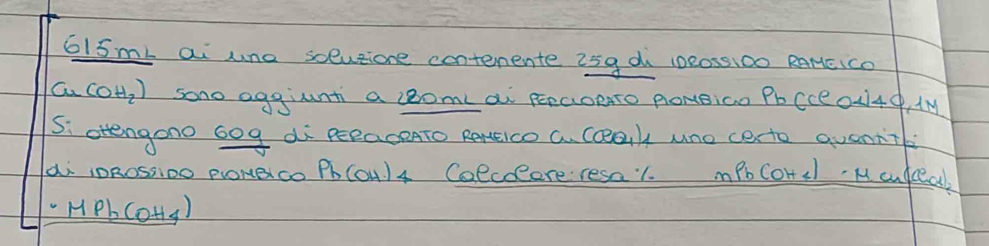 615mL di una soluzione contenente 25g di IDROSSIDO RAMEICO
Cu(OH2) sono aggiunti a 280mL di PERCLORATO PIOMBICO Pb(ClO4)4 0,1M
Si ottengono 60g di PERCLORATO RAMEICO Cu(ClO4)2 una certa quantità
di IDROSSIDO PIOMBICO Pb(OH)4 Calcolare: resa % mPb(OH4) · M Cu(ClO4)2
· MPb(OH4)